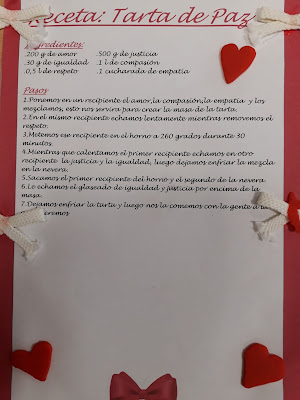 Receta: Tarta de Paz
Ingredientes:
.200 g de amor .500 g de justicia
.30 g de igualdad .1 l de compasión
.0,5 l de respeto .1 cucharada de empatía
Pasos
1.Ponemos en un recipiente el amor,la compasión,la empatía y los
mezclamos, esto nos servira para crear la masa de la tarta.
2.En el mismo recipiente echamos lentamente mientras removemos el
respeto.
3.Metemos ese recipiente en el horno a 260 grados durante 30
minutos.
4.Mientras que calentamos el primer recipiente echamos en otro
recipiente la justicia y la igualdad, luego dejamos enfriar la mezcla
en la nevera.
5.Sacamos el primer recipiente del horno y el segundo de la nevera.
6.Le echamos el glaseado de igualdad y justicia por encima de la
masa.
7.Dejamos enfriar la tarta y luego nos la comemos con la gente a la
queremos